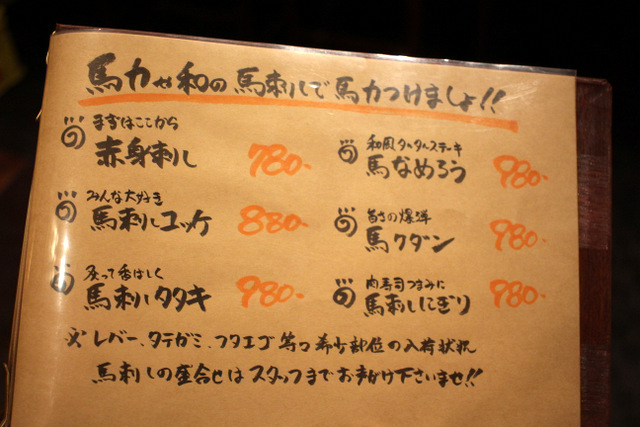 馬力や和の馬刺しで馬力つけましょ!!
まずはここから
赤身刺し 780-
みんな大好き
馬刺しユッケ 880-
炙って香ばしく
馬刺しタタキ 980-
和風タルタルステーキ
馬なめろう 980-
旨さの爆弾
馬クダン 980-
肉寿司つまみに
馬刺しにぎり 980-
※レバー、タテガミ、フタエゴ等の希少部位の入荷状況
馬刺しの盛合せはスタッフまでお声がけ下さいませ!!